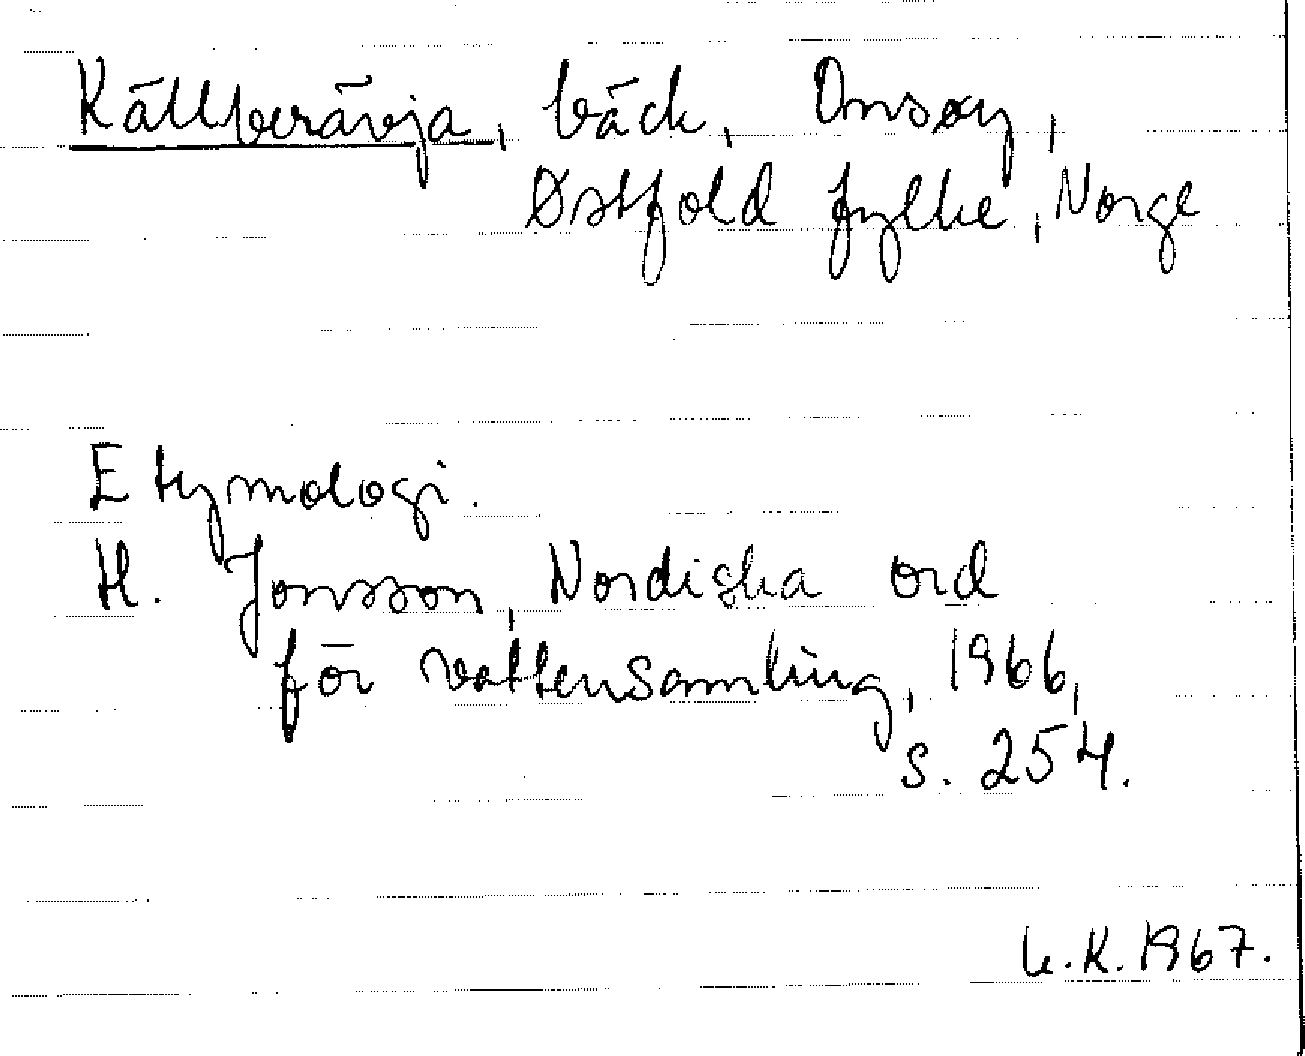 Källberävja, bäck, Onsøy,
Østfold fylke, Norge
Etymologi.
H. Jonsson, Nordiska ord
för vattensamling, 1966,
s. 254.
K. 1967.